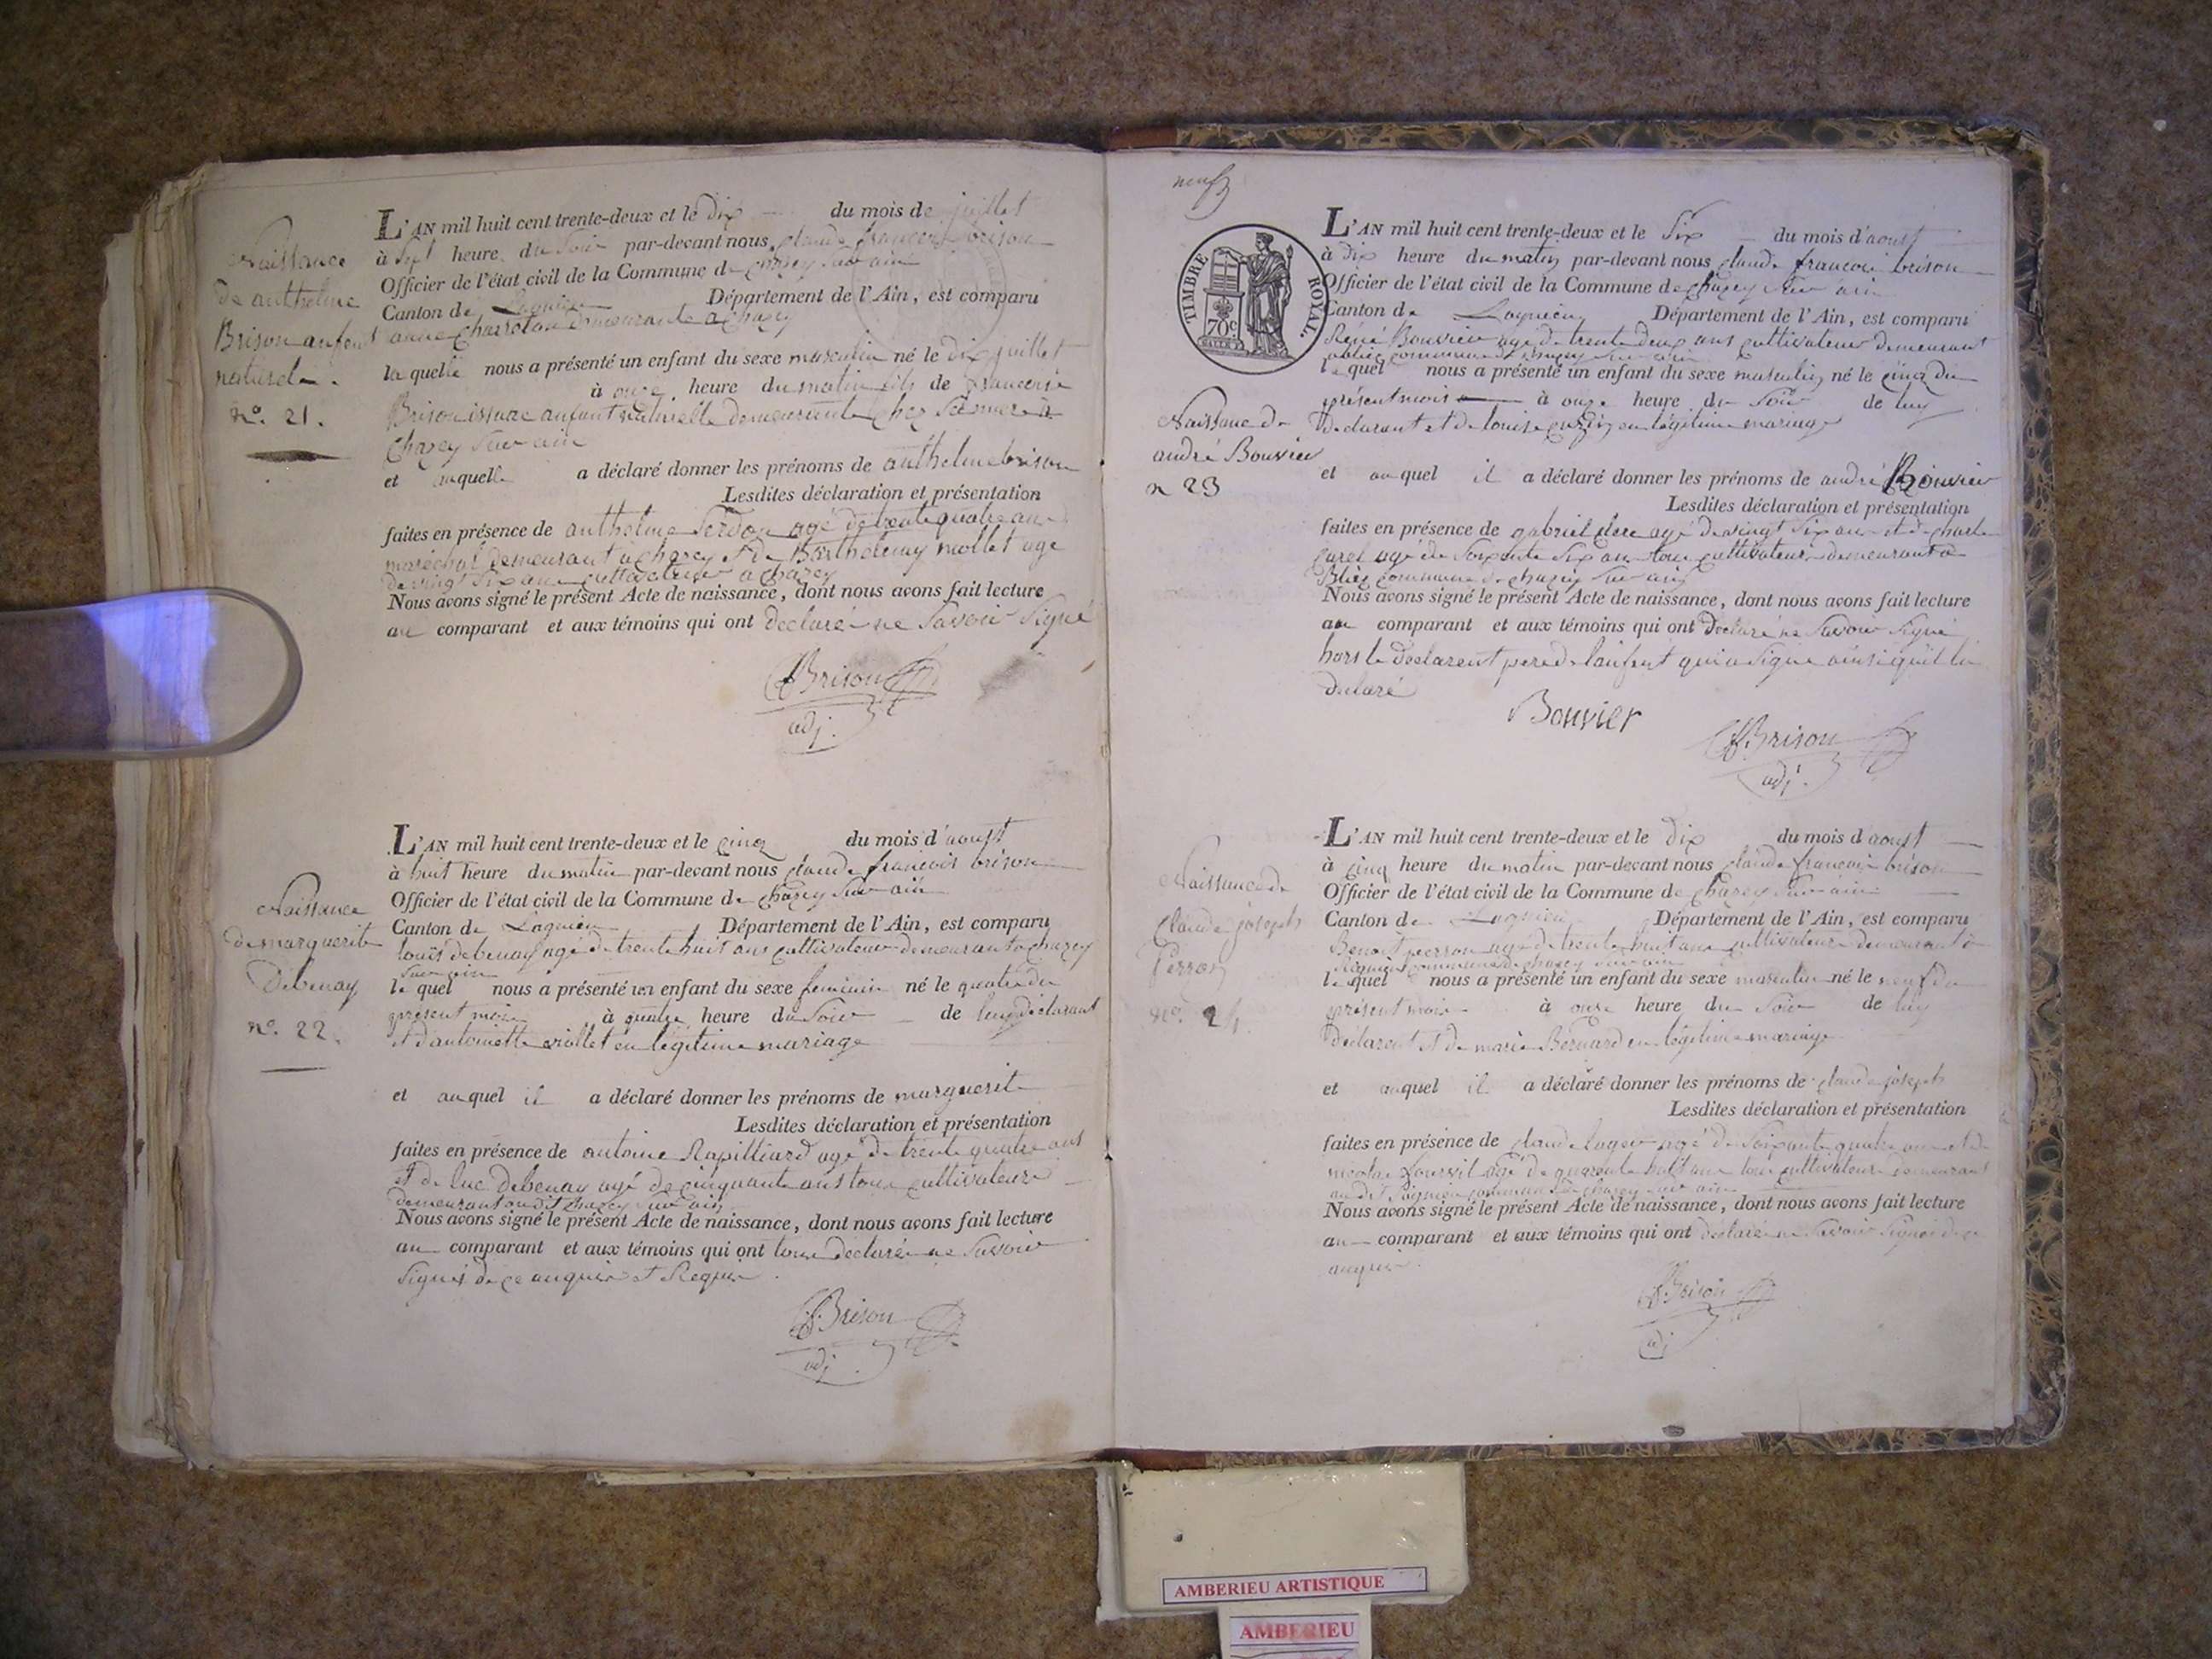 Naissance
de anthelme
Brison anfent
naturel.
nº. 21.
L'AN mil huit cent trente-deux et le dix du mois de juillet
à sept heure du soir par-devant nous claude francois brison
Officier de l'état civil de la Commune de chazey sur ain
Canton de Lagnieu Département de l'Ain, est comparu
anne charreton demeurante a chazey
laquelle nous a présenté un enfant du sexe masculin né le dix juillet
à onze heure du matin fils de francoise
Brison issue anfent naturelle demeurante chez
chazey sur ain
et auquelle a déclaré donner les prénoms de anthelme brison
Lesdites déclaration et présentation
faites en présence de anthelme Serdon agé de trente quatre ans
maréchal demeurant a chazey et de Barthelemy mollet agé
de vingt six ans cultivateur a chazey
Nous avons signé le présent Acte de naissance, dont nous avons fait lecture
au comparant et aux témoins qui ont declaré ne savoir signé
Brison
adj.
Naissance
de marguerit
Debenay
nº. 22.
L'AN mil huit cent trente-deux et le cinq du mois d'aoust
à huit heure du matin par-devant nous claude francois brison
Officier de l'état civil de la Commune de chazey sur ain
Canton de Lagnieu Département de l'Ain, est comparu
louis debenay agé de trente huit ans cultivateur demeurant a chazey
sur ain
lequel nous a présenté un enfant du sexe feminin né le quatre du
présent mois à quatre heure du soir de luy déclarant
et d'antoinette violet en légitime mariage
et auquel il a déclaré donner les prénoms de marguerit
Lesdites déclaration et présentation
faites en présence de antoine Rapilliard agé de trente quatre ans
et de luc Debenay agé de cinquante ans tous cultivateurs
demeurant audit chazey sur ain
Nous avons signé le présent Acte de naissance, dont nous avons fait lecture
au comparant et aux témoins qui ont tous declaré ne savoir
signés de ce anquis et Requis.
Brison
adj.
neuf
TIMBRE ROYAL.
70c
Naissance de
andré Bouvier
n 23
L'AN mil huit cent trente-deux et le six du mois d'aoust
à dix heure du matin par-devant nous claude francois brison
Officier de l'état civil de la Commune de chazey sur ain
Canton de Lagnieu Département de l'Ain, est comparu
René Bouvier agé de trente deux ans cultivateur demeurant
a blies commune de chazey sur ain
lequel nous a présenté un enfant du sexe masculin né le cinq du
présent mois à onze heure du soir de luy
declarant et de louise cuzin en légitime mariage
et auquel il a déclaré donner les prénoms de andré Bouvier
Lesdites déclaration et présentation
faites en présence de gabriel dere agé de vingt six ans et de charle
curel agé de soixante six ans tous cultivateurs demeurant a
Blies commune de chazey sur ain
Nous avons signé le présent Acte de naissance, dont nous avons fait lecture
au comparant et aux témoins qui ont declaré ne savoir signé
hors le declarent pere de lanfent qui a signé ainsi quil la
declaré
Bouvier
Brison
adj.
Naissance de
claude joseph
Perron
nº. 24.
L'AN mil huit cent trente-deux et le dix du mois d'aoust
à cinq heure du matin par-devant nous claude francois brison
Officier de l'état civil de la Commune de chazey sur ain
Canton de Lagnieu Département de l'Ain, est comparu
Benoit perron agé de trente huit ans cultivateur demeurant a
commune de chazey sur ain
lequel nous a présenté un enfant du sexe masculin né le neuf du
présent mois à onze heure du soir de luy
déclarent et de marie Bernard en légitime mariage
et auquel il a déclaré donner les prénoms de claude joseph
Lesdites déclaration et présentation
faites en présence de claude agé de soixante quatre ans et de
nicolas agé de quarante huit ans tous cultivateurs demeurant
au dit commune de chazey sur ain
Nous avons signé le présent Acte de naissance, dont nous avons fait lecture
au comparant et aux témoins qui ont déclaré ne savoir signés de ce
anquis.
Brison
adj
AMBERIEU ARTISTIQUE
AMBERIEU